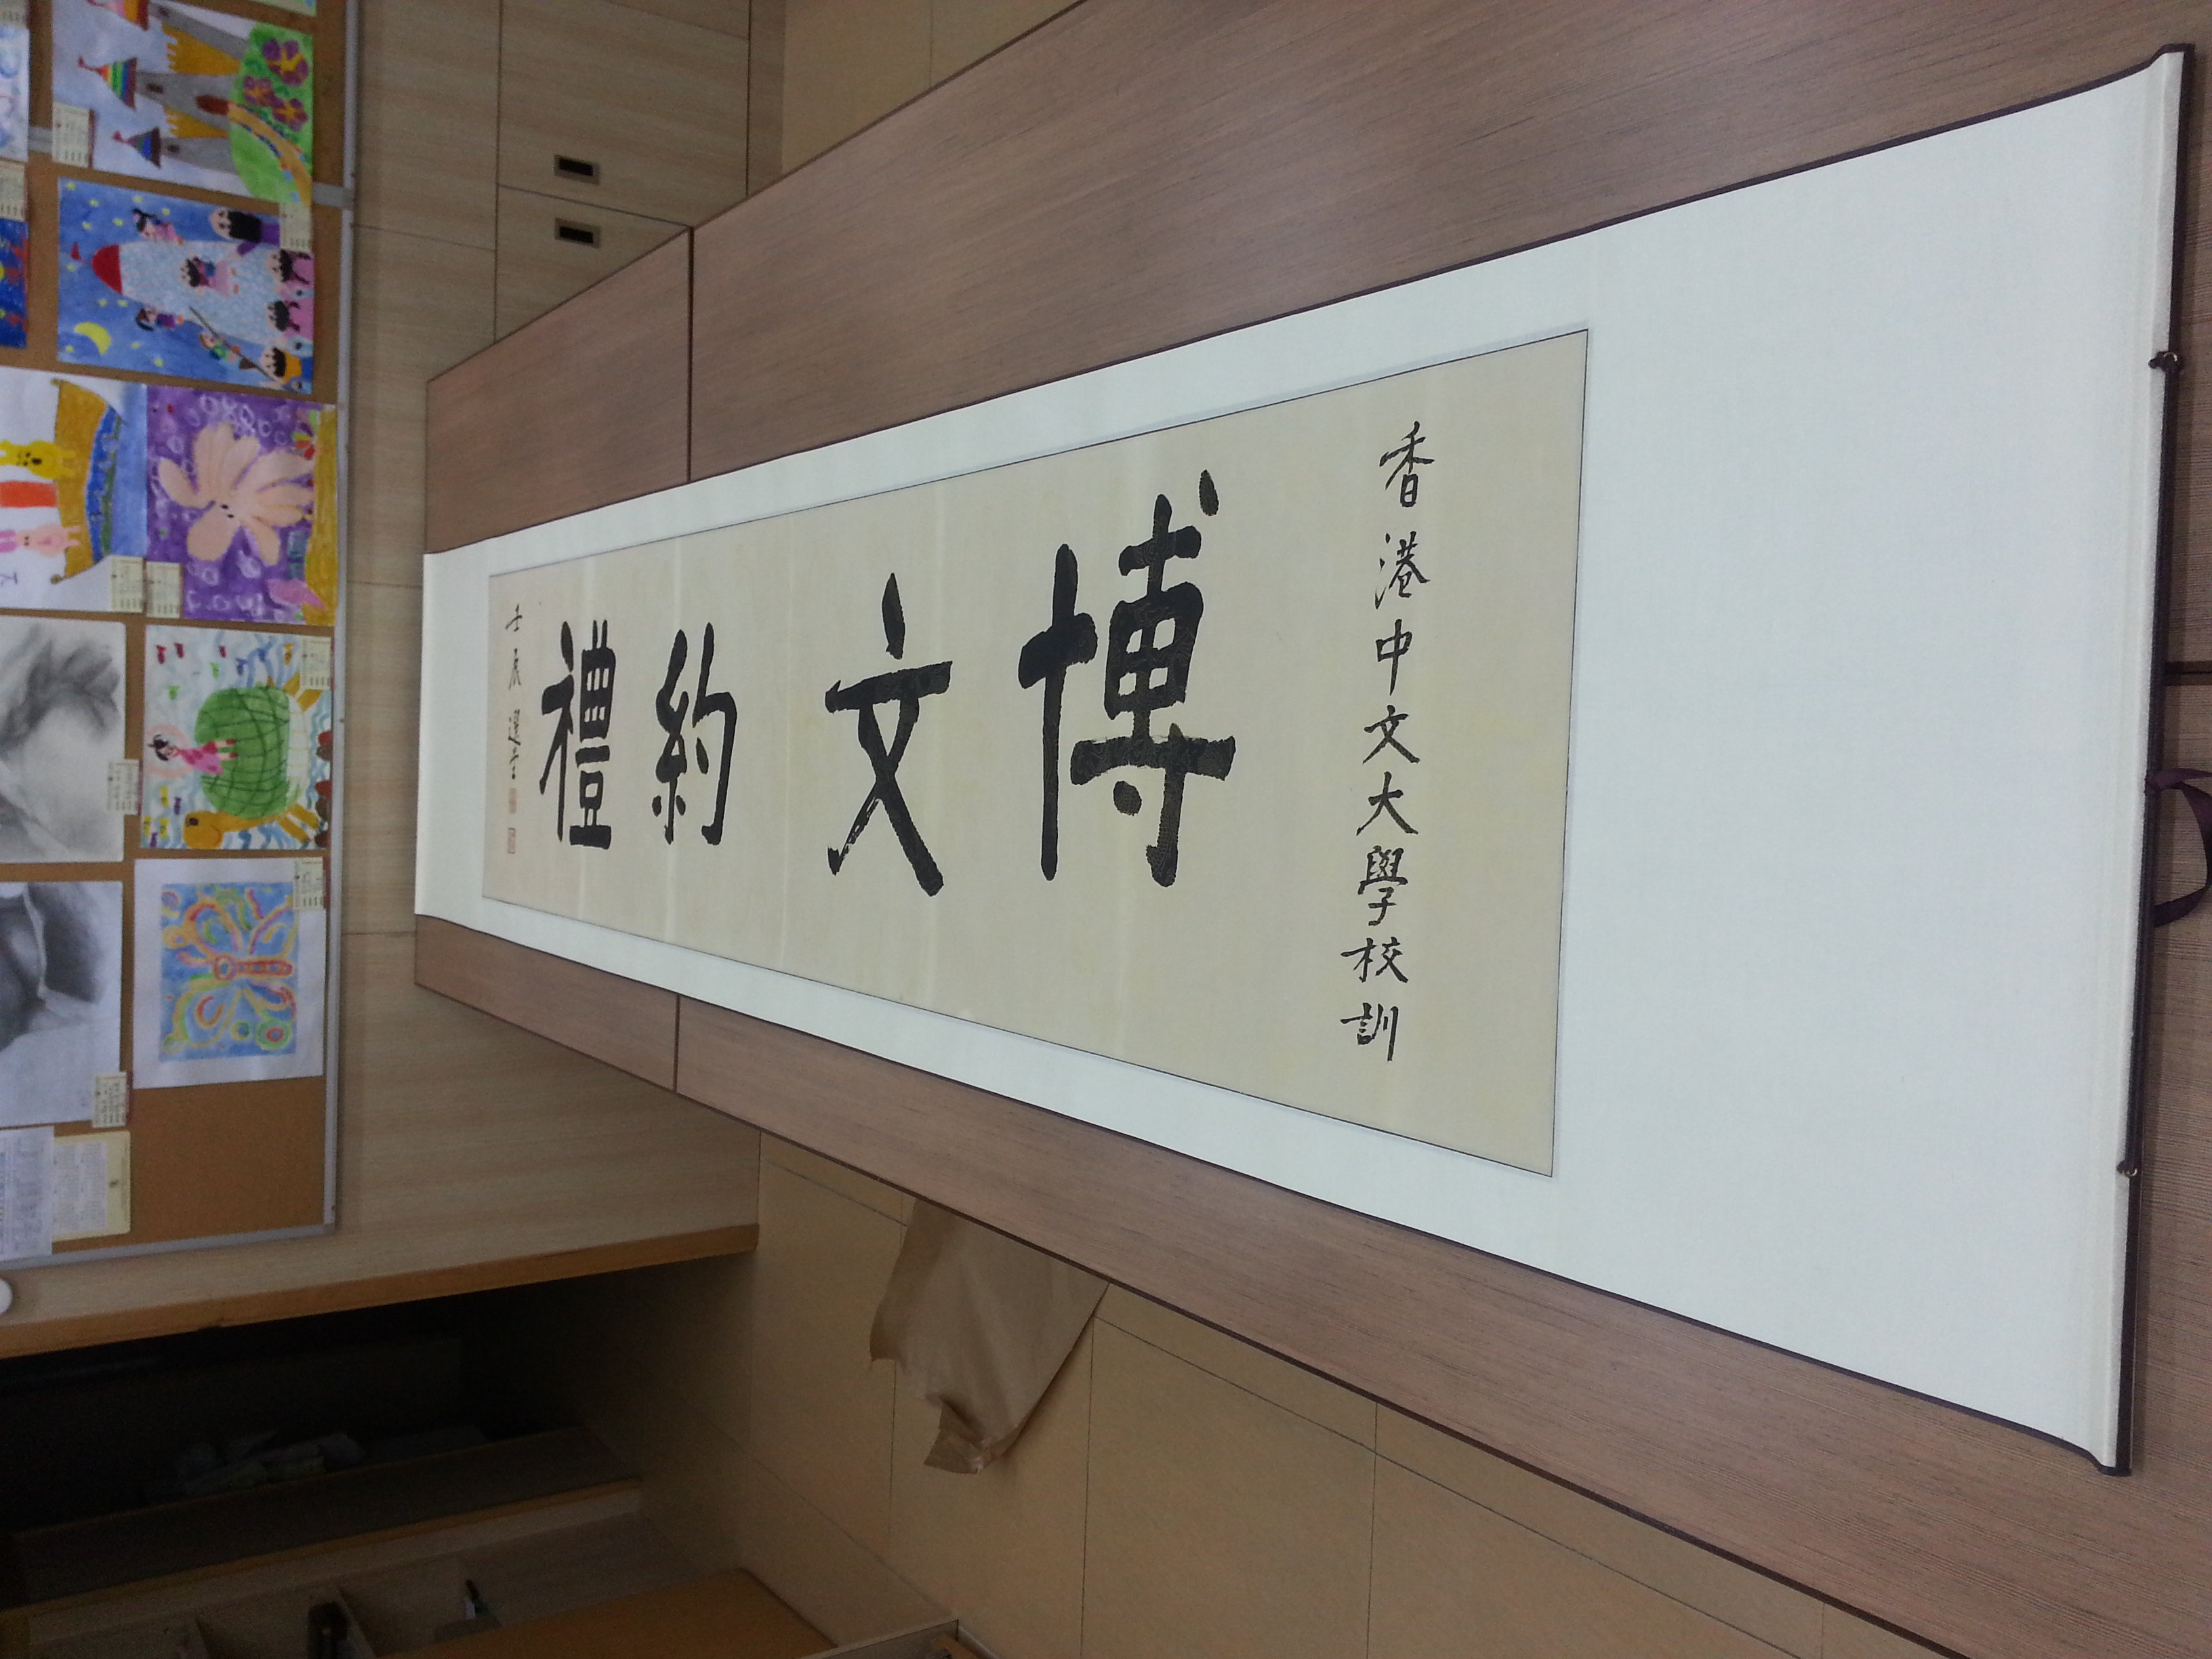 香港中文大學校訓
博文約禮
壬辰 選堂